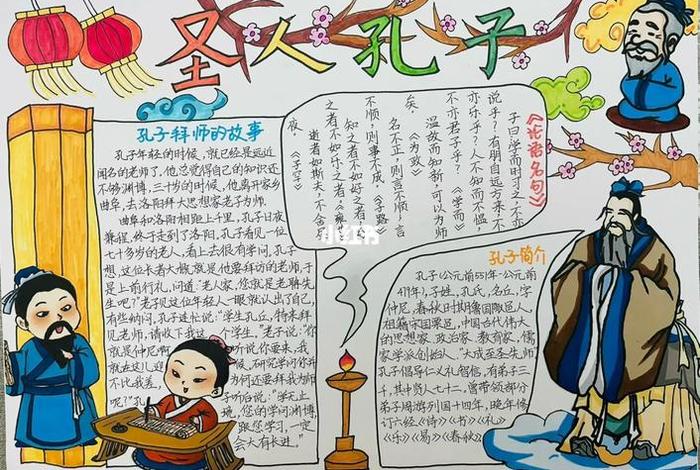 圣人孔子
孔子拜师的故事
孔子年轻的时候，就已经是远近
闻名的老师了，他总觉得自己的知识还
不够渊博，三十岁的时候，他离开家乡
曲阜，去洛阳拜大思想家老子为师。
曲阜和洛阳相距上千里，孔子日夜
兼程，终于走到了洛阳，孔子看见一位
七十多岁的老人，看上去很有学问，孔子
想，这位长者大概就是他要拜访的老师，于
是上前行礼，问道:"老人家，您就是老聃先
生吧?"老子见这位年轻人一眼就认出了自己，
有些纳闷，孔子连忙说:"学生孔丘，特来拜
见老师，请收下我这个学生。"老子说:"你
就是仲尼啊
就在这儿迎候，研究学问你并
不比我差，为何还要拜我为师
呢?"孔子听后说:"学无止
境，您的学问渊博，
跟您学习，一定
会大有长进。"
《论语名句》
子曰:学而时习之，不亦
说乎?有朋自远方来，不
亦乐乎?人不知而不愠，
不亦君子乎?《学而》
温故而知新，可以为师
矣。《为政》
名不正，则言不顺，言
不顺，则事不成。《子路》
知之者不如好之者，好
之者不如乐之者。《雍
逝者如斯夫，不舍昼
夜。《子罕》
小红书
孔子简介
孔子(公元前551年-公元前
479年)，子姓，孔氏，名丘，字
仲尼，春秋时期鲁国陬邑人，
祖籍宋国栗邑，中国古代伟大
的思想家、政治家、教育家，儒
家学派创始人、"大成至圣先师"
孔子倡导仁义礼智信，有弟子三
千，其中贤人七十二，曾带领部分
弟子周游列国十四年，晚年修
订六经《诗》《书》《礼》
《乐》《易》《春秋》